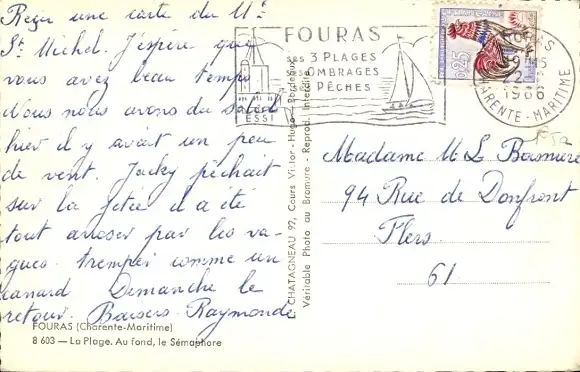 Reçu une carte du Mt
St Michel. J'espère que
vous avez beau temps
Nous nous avons du soleil
hier il y avait un peu
de vent. Jacky pêchait
sur la jetée il a été
tout arroser par les va-
gues. tremper comme un
canard Dimanche le
retour. Baisers Raymonde
FOURAS (Charente-Maritime)
8 603 — La Plage. Au fond, le Sémaphore
CHATAGNEAU 97, Cours Victor-Hugo - Bordeaux
Véritable Photo au Bromure - Reprod. Interdite
FOURAS
3 PLAGES
OMBRAGES
PÊCHES
0,25
1966
CHARENTE-MARITIME
Madame M L
94 Rue de Domfront
Flers
61